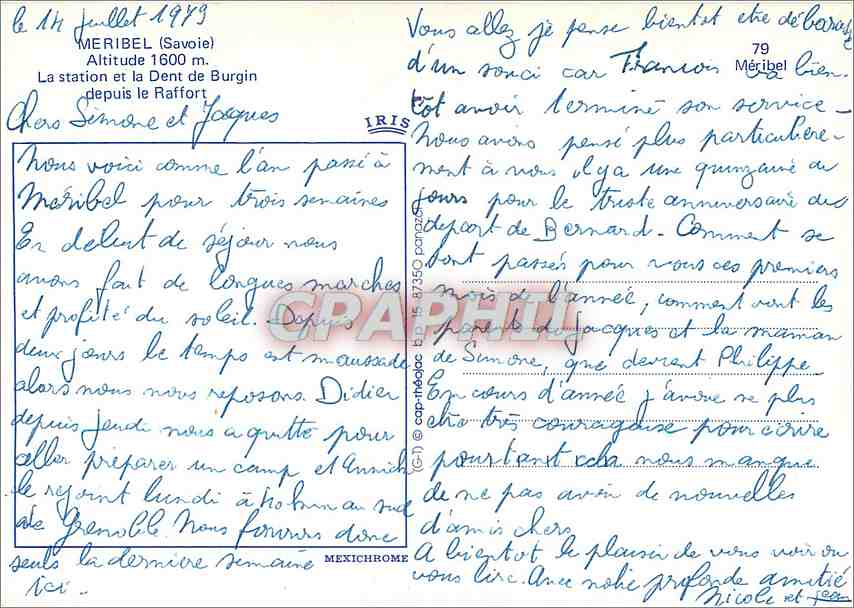 le 14 juillet 1979
MERIBEL (Savoie)
Altitude 1600 m.
La station et la Dent de Burgin
depuis le Raffort
Chers Simone et Jacques
IRIS
Nous voici comme l'an passé à
Méribel pour trois semaines
En debut de séjour nous
avons fait de longues marches
et profité du soleil. Depuis
deux jours le temps est maussade
alors nous nous reposons. Didier
depuis jeudi nous a quitté pour
aller préparer un camp et Annick
le rejoint lundi à 40 km au sud
de Grenoble. Nous finirons donc
seuls la dernière semaine
ici.
MEXICHROME
(G-1) © cap-théojac b.p 15 87350 panazol
CPAPHIL
79
Méribel
Vous allez je pense bientot etre débarassé
d'un souci car Francois va bien-
tôt avoir terminé son service-
Nous avons pensé plus particulière-
ment à vous il y a une quinzaine de
jours pour le triste anniversaire du
depart de Bernard. Comment se
sont passés pour vous ces premiers
mois de l'année, comment vont les
parents de Jacques et la maman
de Simone, que devient Philippe
En cours d'année j'avoue ne plus
etre très courageuse pour écrire
pourtant cela nous manque
de ne pas avoir de nouvelles
d'amis chers
A bientot le plaisir de vous voir ou
vous lire. Avec notre profonde amitié
Nicole et Jean